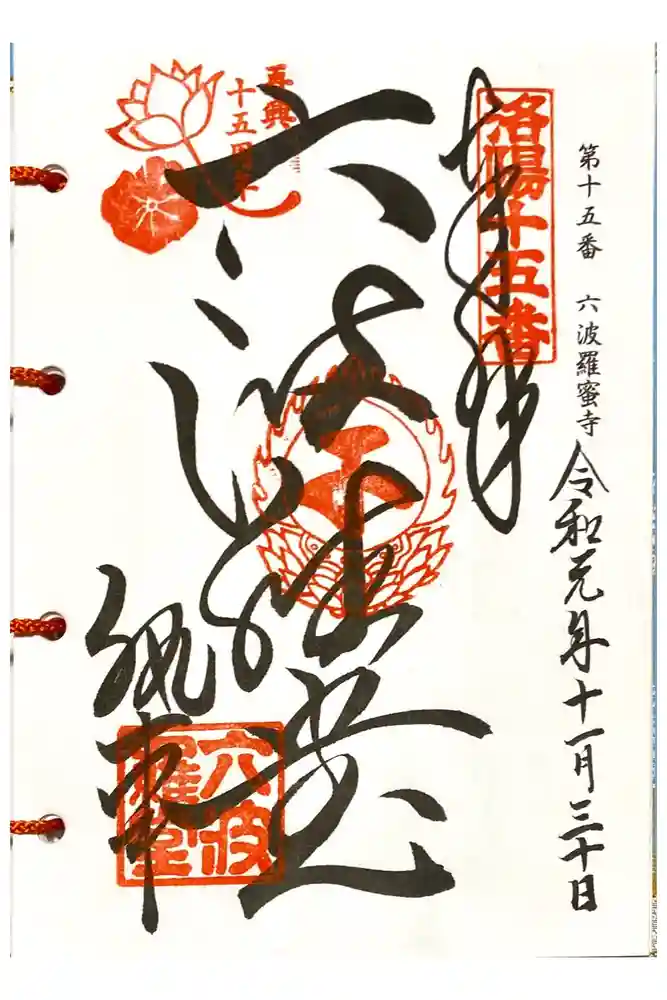 第十五番 六波羅蜜寺
令和元年十一月三十日
奉拝
洛陽十五番
再興
十五周年
六波羅堂
執事
六波
羅堂